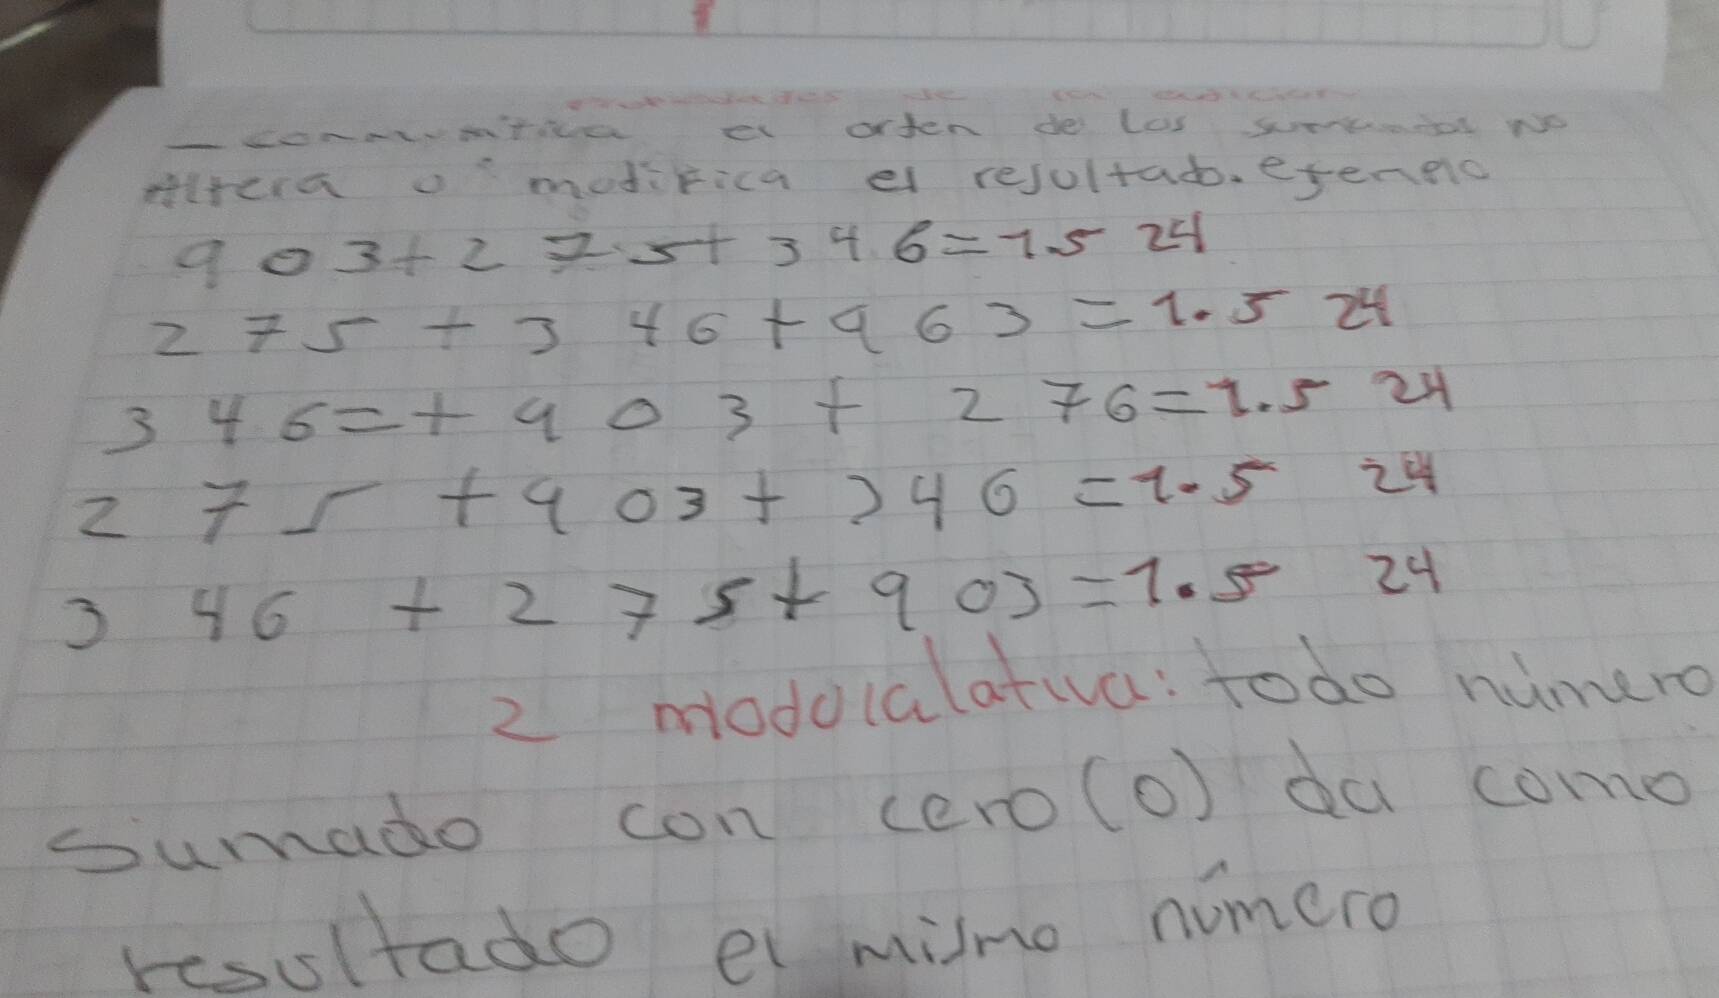 propiedades de la adicion
- conmumitiva el orten de los sumandos no
Altera o modifica el resultado. efenplo
903+275+346=1.524
275+346+963=1.524
346=+903+276=1.524
275+903+346=1.524
346+275+903=1.524
2 modulalativa: todo número
sumado con cero(0) da como
resultado el mismo número